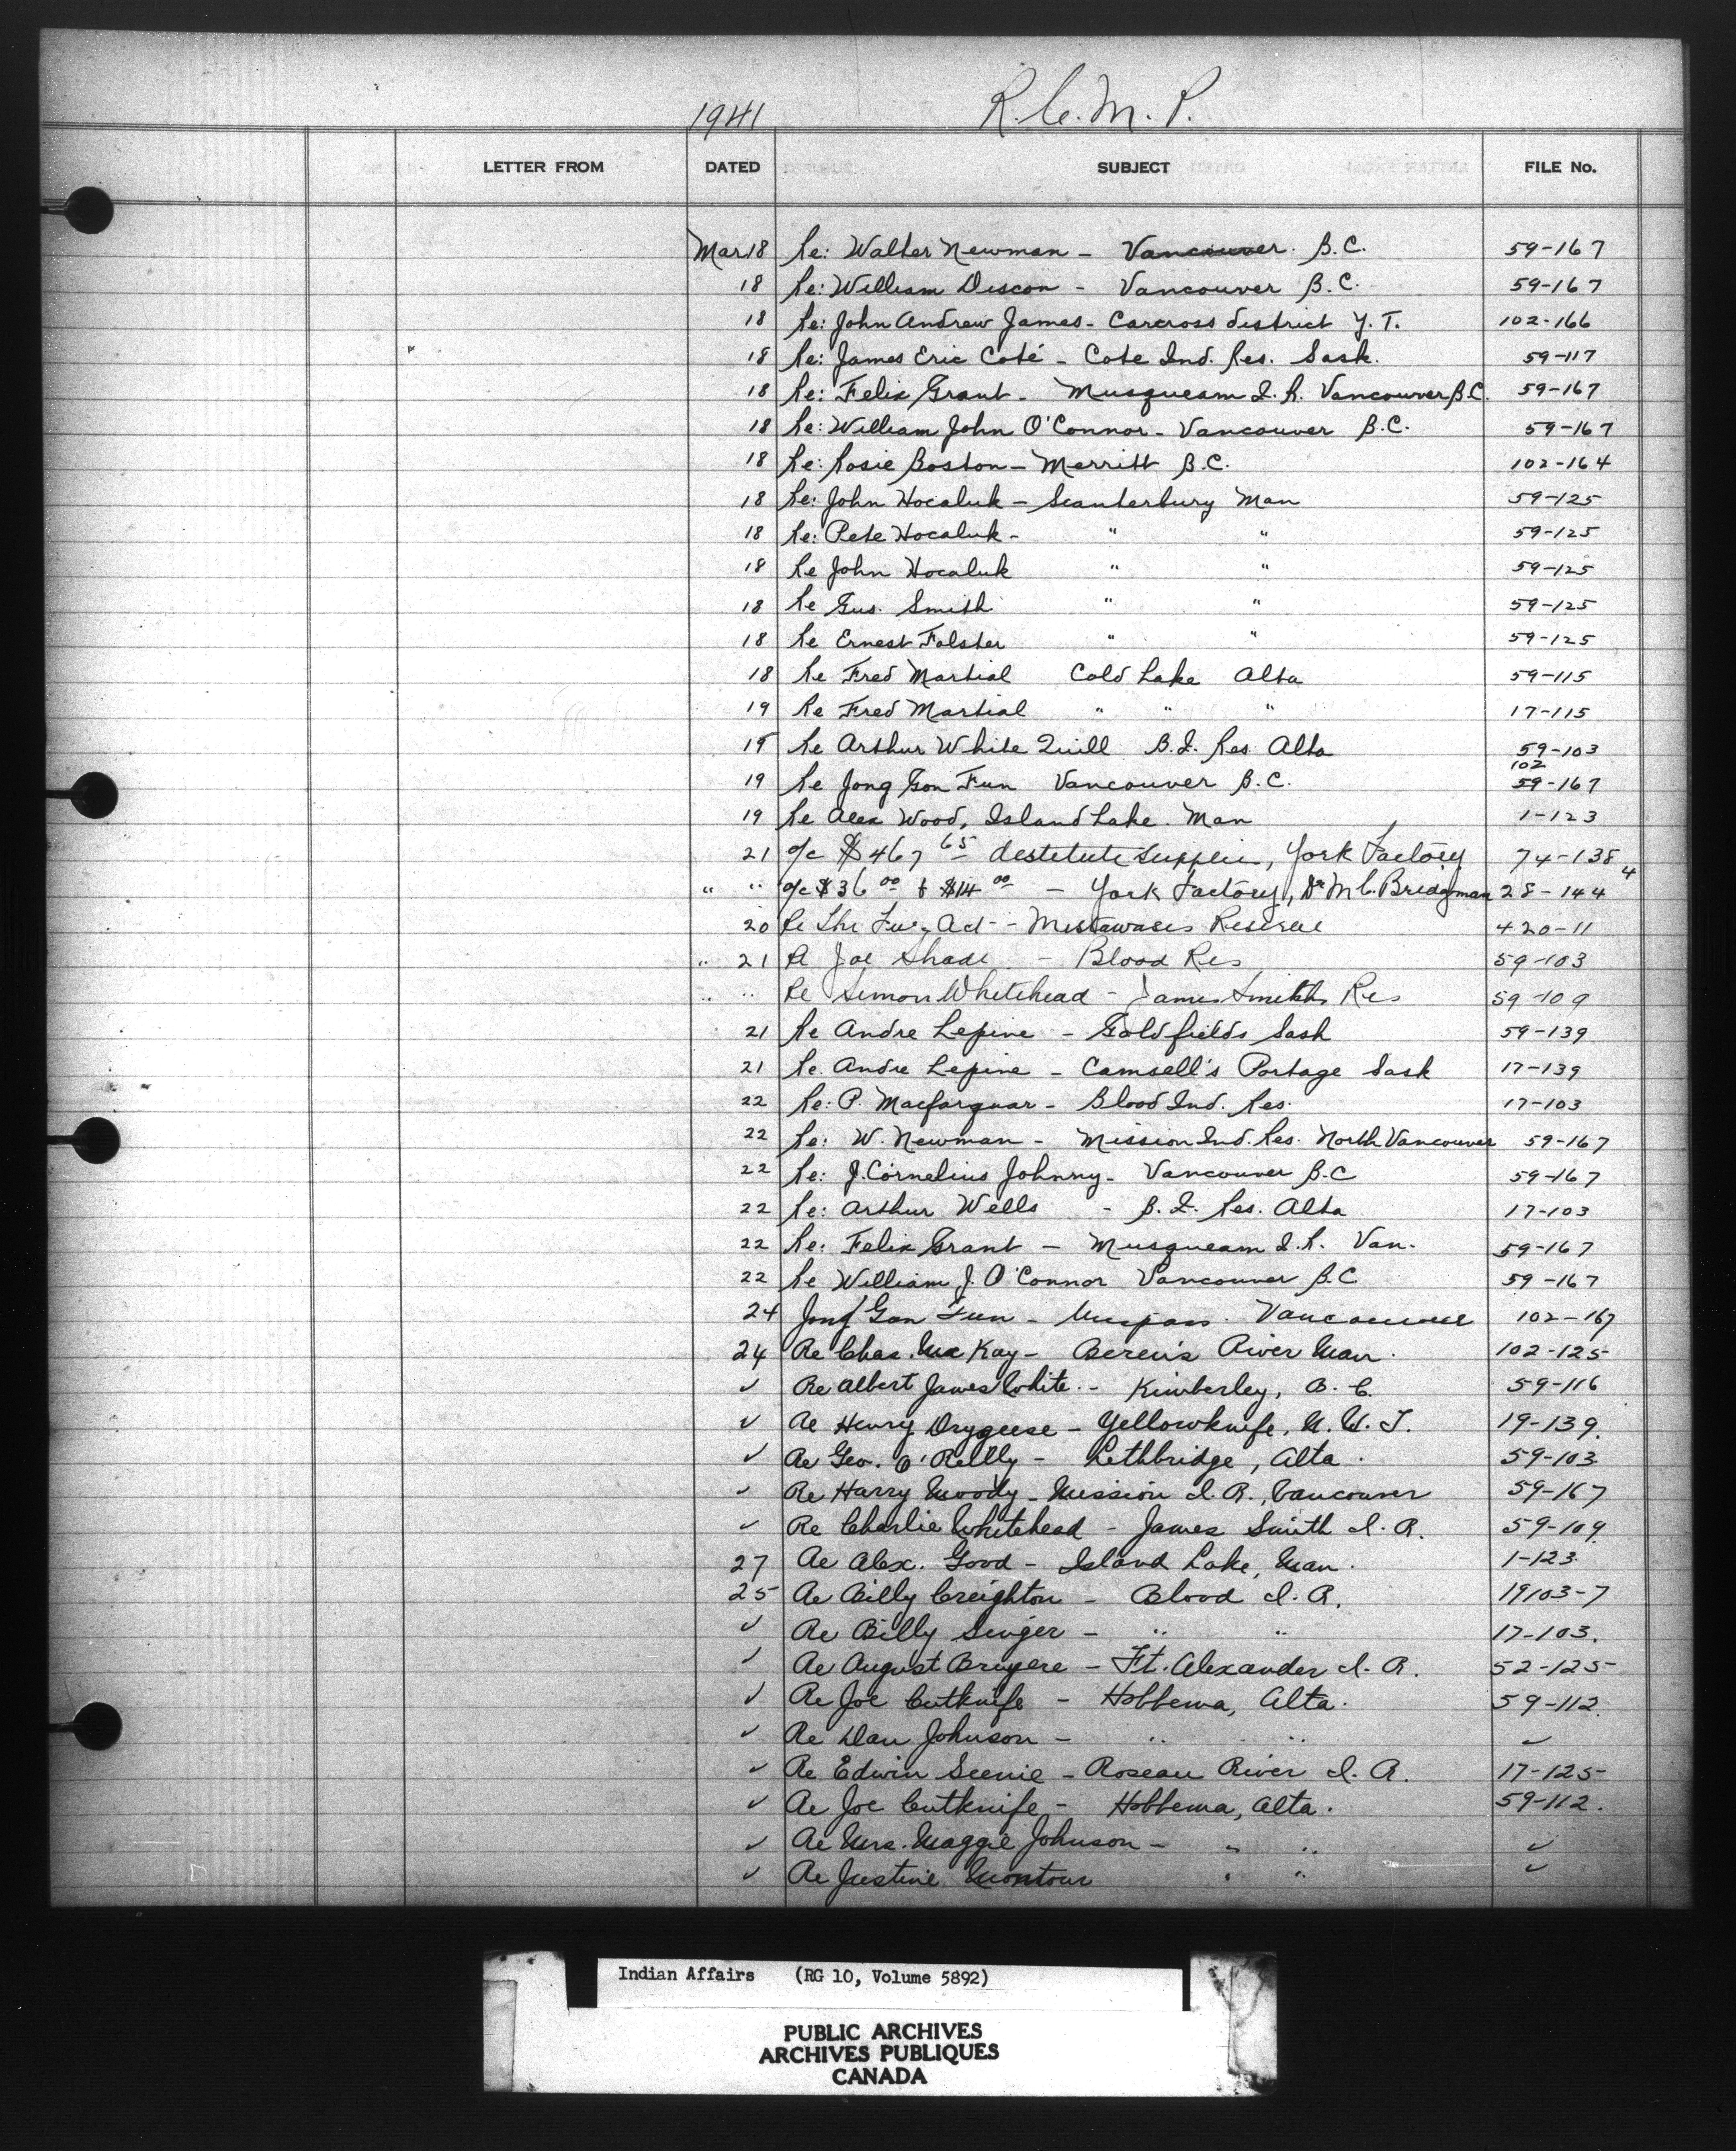 1941 R.C.M.P.
LETTER FROM DATED SUBJECT FILE No.
Mar 18 Re: Walter Newman - Vancouver. B.C. 59-167
18 Re: William Discon - Vancouver B.C. 59-167
18 Re: John Andrew James - Carcross district Y.T. 102-166
18 Re: James Eric Coté - Cote Ind. Res. Sask. 59-117
18 Re: Felix Grant - Musqueam I.R. Vancouver B.C. 59-167
18 Re: William John O'Connor - Vancouver B.C. 59-167
18 Re: Rosie Boston - Merritt B.C. 102-164
18 Re: John Hocaluk - Scanterbury Man 59-125
18 Re: Pete Hocaluk - " " 59-125
18 Re John Hocaluk " " 59-125
18 Re Gus. Smith " " 59-125
18 Re Ernest Folster " " 59-125
18 Re Fred Martial Cold Lake Alta 59-115
19 Re Fred Martial " " " 17-115
19 Re Arthur White Quill B.I. Res. Alta 59-103
19 Re Jong Gon Fun Vancouver B.C. 102 59-167
19 Re Alex Wood, Island Lake. Man 1-123
21 a/c $467 65 destitute supplies, York Factory 74-138
" " a/c $36 00 & $14 00 - York Factory, Dr M C. Bridgman 28-144 4
20 Re The Fur Act - Mistawasis Reserve 420-11
" 21 Re Joe Shade - Blood Res 59-103
" " Re Simon Whitehead - James Smith Res 59-109
21 Re Andre Lepine - Goldfields Sask 59-139
21 Re. Andre Lepine - Camsell's Portage Sask 17-139
22 Re: P. Macfarquar - Blood Ind. Res. 17-103
22 Re: W. Newman - Mission Ind. Res. North Vancouver 59-167
22 Re: J. Cornelius Johnny - Vancouver B.C 59-167
22 Re: Arthur Wells - B.I. Res. Alta 17-103
22 Re: Felix Grant - Musqueam I.R. Van. 59-167
22 Re William J. O'Connor Vancouver B.C 59-167
24 Jong Gon Fun - Vancouver 102-167
24 Re Chas. McKay - Beren's River Man. 102-125
✓ Re Albert James White - Kimberley, B.C. 59-116
✓ Re Henry Drygeese - Yellowknife, N.W.T. 19-139.
✓ Re Geo. O'Reilly - Lethbridge, Alta. 59-103
✓ Re Harry Moody - Mission I.R., Vancouver 59-167
✓ Re Charlie Whitehead - James Smith I.R. 59-109.
27 Re Alex. Good - Island Lake, Man. 1-123.
25 Re Billy Creighton - Blood I.R. 19103-7
✓ Re Billy Singer - " " 17-103.
✓ Re August Bruyere - Ft. Alexander I.R. 52-125
✓ Re Joe Cutknife - Hobbema, Alta. 59-112.
✓ Re Dan Johnson - " " ✓
✓ Re Edwin Seenie - Roseau River I.R. 17-125
✓ Re Joe Cutknife - Hobbema, Alta. 59-112.
✓ Re Mrs. Maggie Johnson - " " ✓
✓ Re Justine Montour " " ✓
Indian Affairs (RG 10, Volume 5892)
PUBLIC ARCHIVES
ARCHIVES PUBLIQUES
CANADA